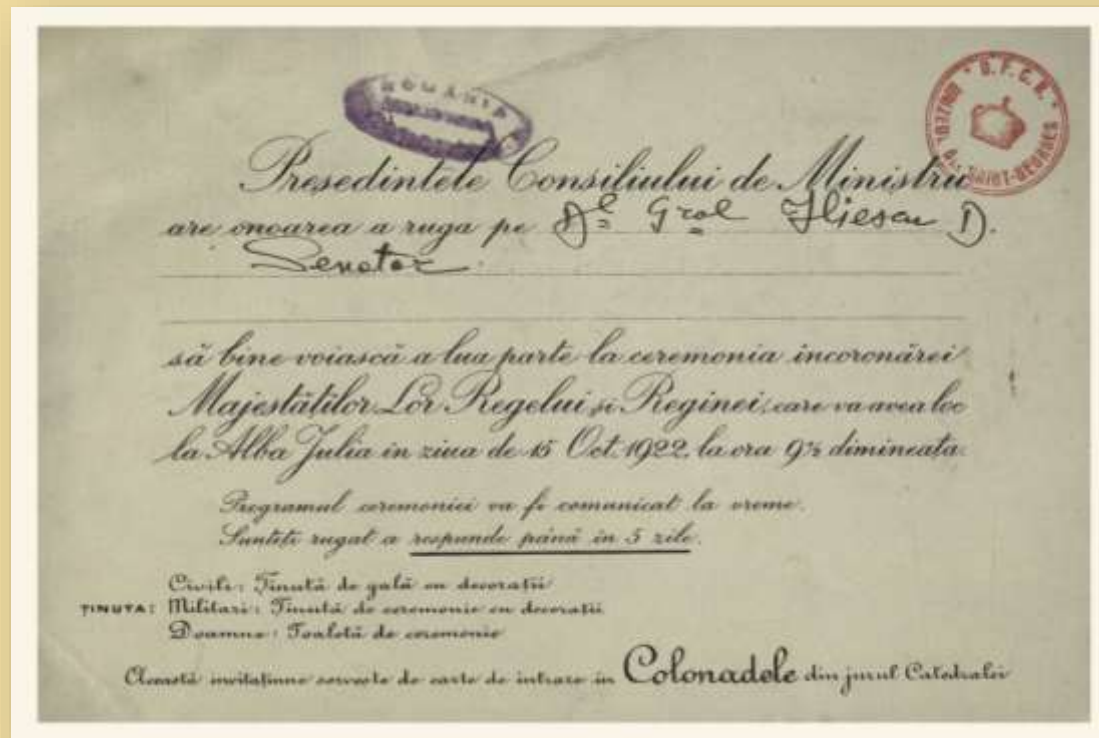 ROMÂNIA
B.F.C.R.
MUZEUL AL. SAINT-GEORGES
Presedintele Consiliului de Ministrii
are onoarea a ruga pe Dl Gral Iliescu D.
Senator.
să bine-voiască a lua parte la ceremonia incoronărei
Majestăților Lor Regelui și Reginei, care va avea loc
la Alba Julia in ziua de 15 Oct. 1922, la ora 9½ dimineața.
Programul ceremoniei va fi comunicat la vreme.
Sunteți rugat a respunde până în 5 zile.
Civili: Ținută de gală cu decorații
ȚINUTA: Militari: Ținută de ceremonie cu decorații
Doamne: Toaletă de ceremonie
Această invitațiune servește de carte de intrare in Colonadele din jurul Catedralei